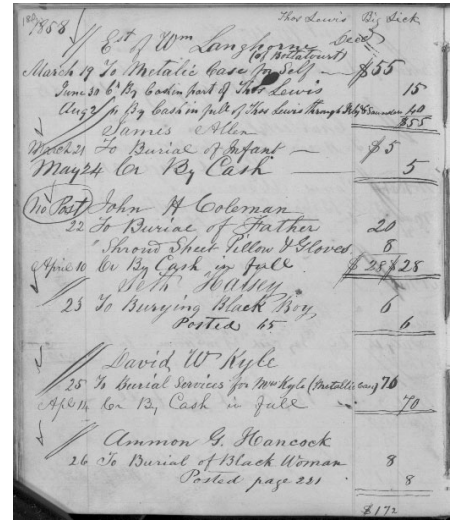 1858 Thos Lewis Big Lick
Est of Wm Langhorne Decd
(of Bottatourt)
March 19 To Metalic Case for Self — $55
June 30 By Cash in part of Thos Lewis 15
Aug 2 By Cash in full of Thos Lewis through 40
$55
James Allen
March 21 To Burial of Infant — $5
May 24 Cr By Cash — 5
No Post John H Coleman
22 To Burial of Father 20
" Shroud Sheet Pillow & Gloves 8
April 10 Cr By Cash in full $28 $28
Seth Halsey
23 To Burying Black Boy 6
Posted 65 6
David W Kyle
25 To Burial Services for Mrs Kyle (Metallic case) 70
Apl 14 Cr By Cash in full 70
Ammon G. Hancock
26 To Burial of Black Woman 8
Posted page 221 8
$172